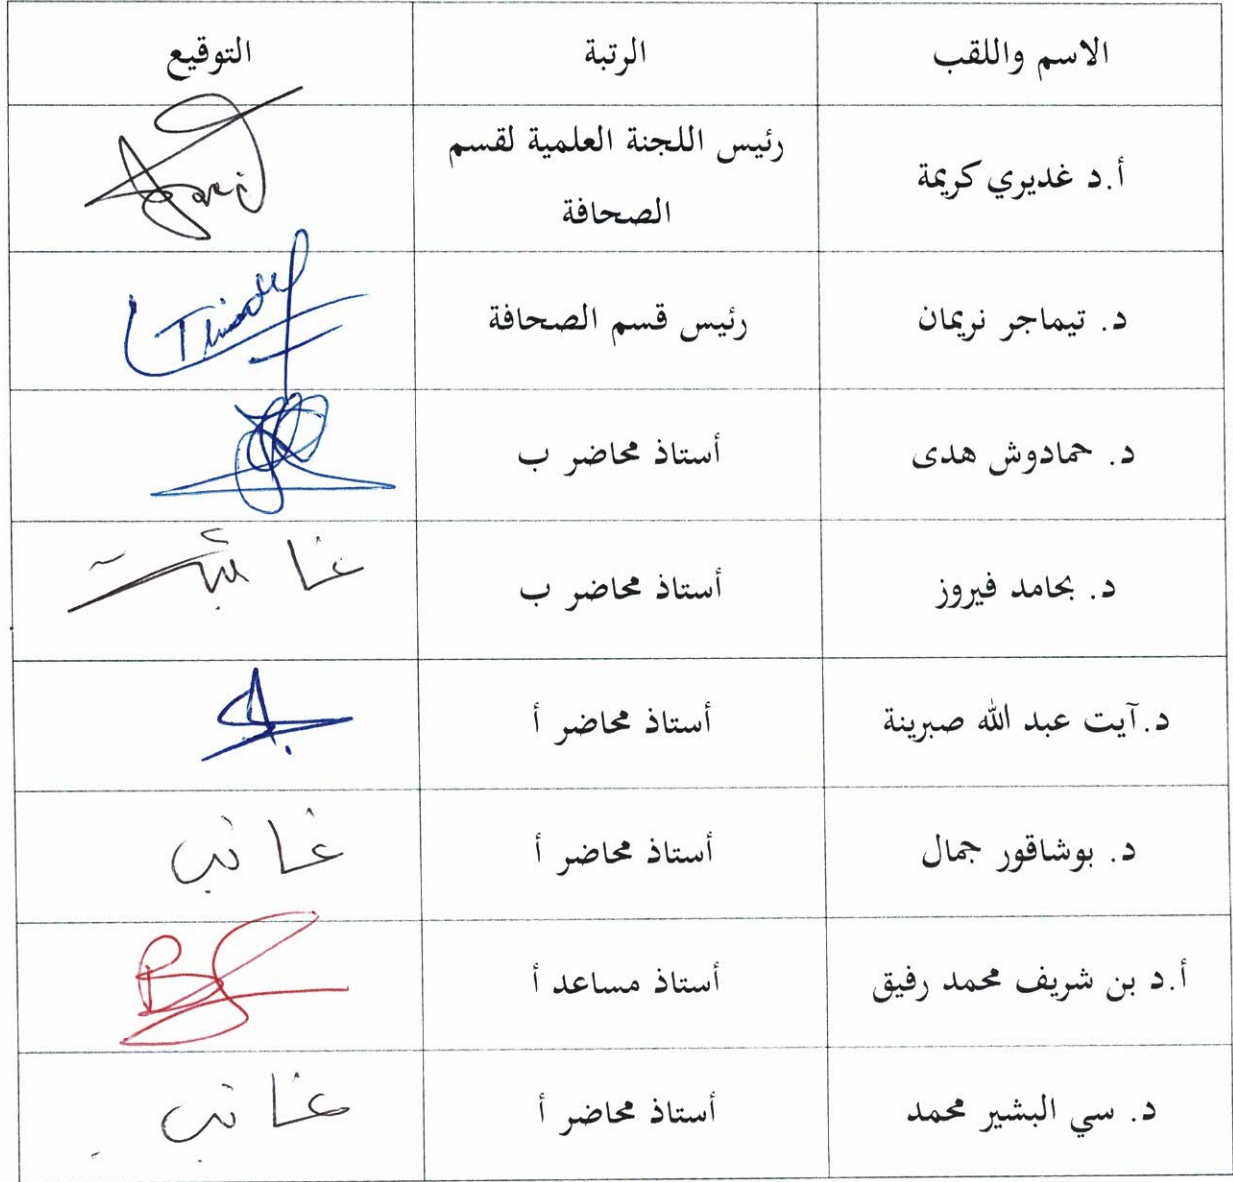 الاسم واللقب الرتبة التوقيع
أ.د غديري كريمة رئيس اللجنة العلمية لقسم
الصحافة
د. تيماجر نريمان رئيس قسم الصحافة
د. حمادوش هدى أستاذ محاضر ب
د. بحامد فيروز أستاذ محاضر ب غائبة
د.آيت عبد الله صبرينة أستاذ محاضر أ
د. بوشاقور جمال أستاذ محاضر أ غائب
أ.د بن شريف محمد رفيق أستاذ مساعد أ
د. سي البشير محمد أستاذ محاضر أ غائب